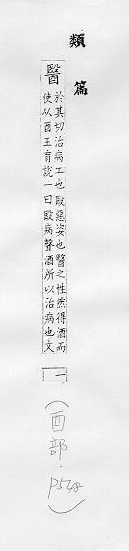 類篇
醫
於其切治病工也殹惡姿也醫之性然得酒而
使从酉王育說一曰殹病聲酒所以治病也文
一
(酉部·
P548)